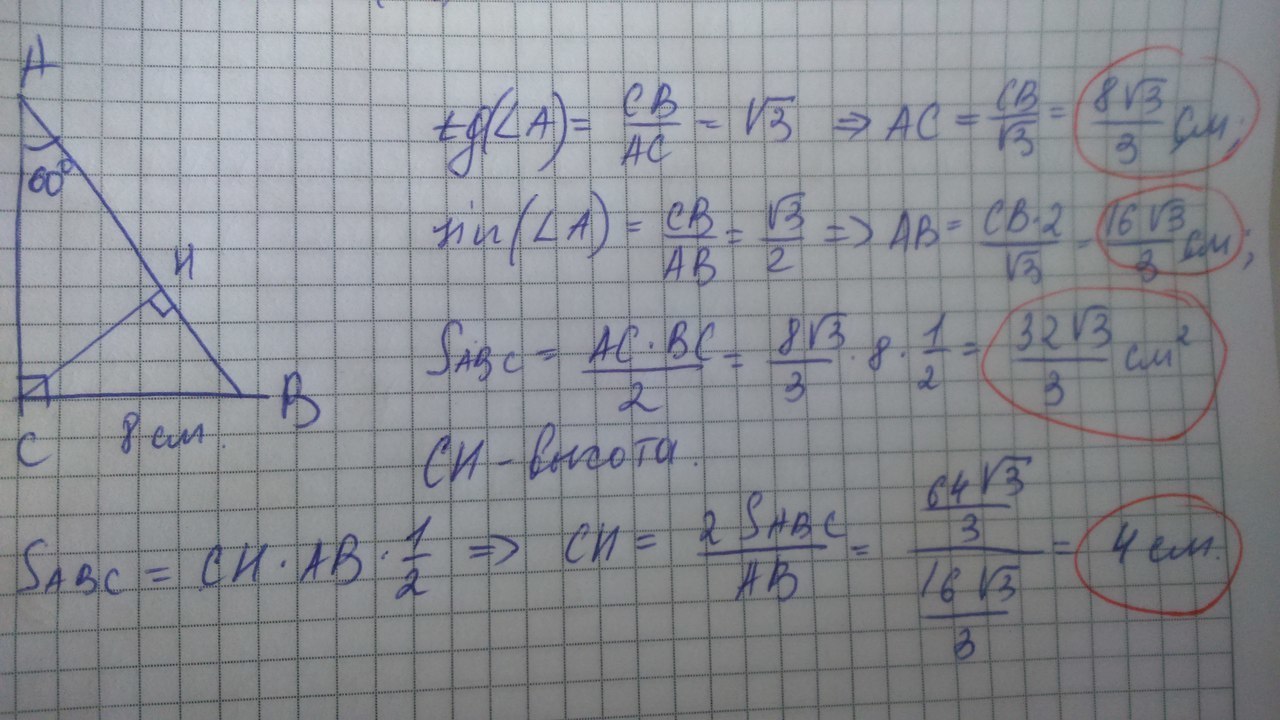 A
60°
H
C
8 см.
B
tg(∠A) = CB/AC = √3 ⇒ AC = CB/√3 = 8√3/3 см;
sin(∠A) = CB/AB = √3/2 ⇒ AB = CB·2/√3 = 16√3/3 см;
S_ABC = AC·BC/2 = 8√3/3 · 8 · 1/2 = 32√3/3 см²
CH – высота.
S_ABC = CH · AB · 1/2 ⇒ CH = 2 S_ABC/AB = (64√3/3)/(16√3/3) = 4 см.